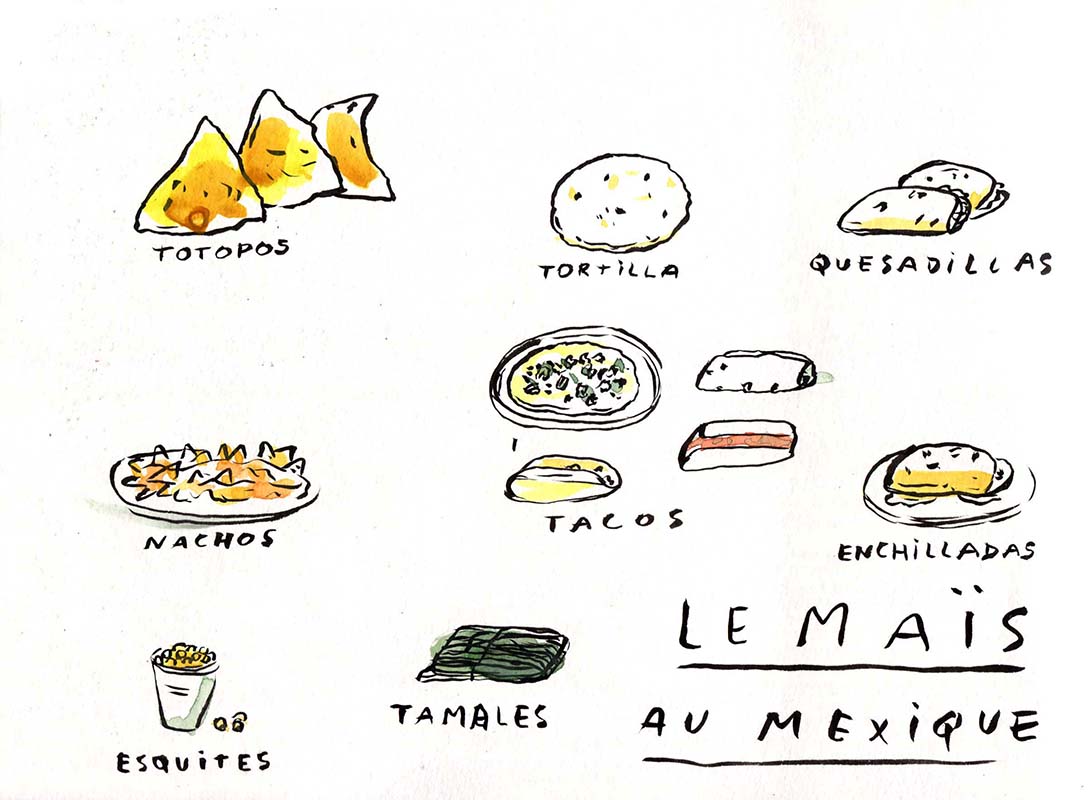 TOTOPOS
TORTiLLA
QUESADiLLAS
NACHOS
TACOS
ENCHiLLADAS
ESQUiTES
TAMALES
LE MAÏS
AU MExiQUE